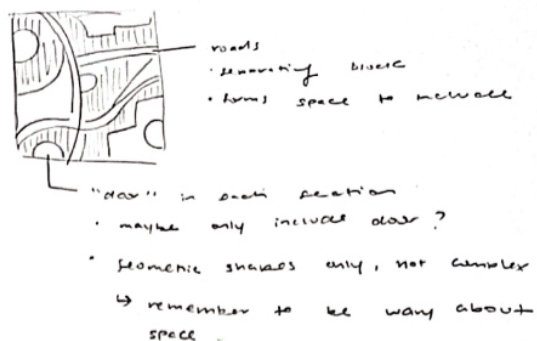 roads
• separating block
• forms space to
"door" in each section
• maybe only include door ?
• geometric shapes only, not complex
↳ remember to be wary about
space